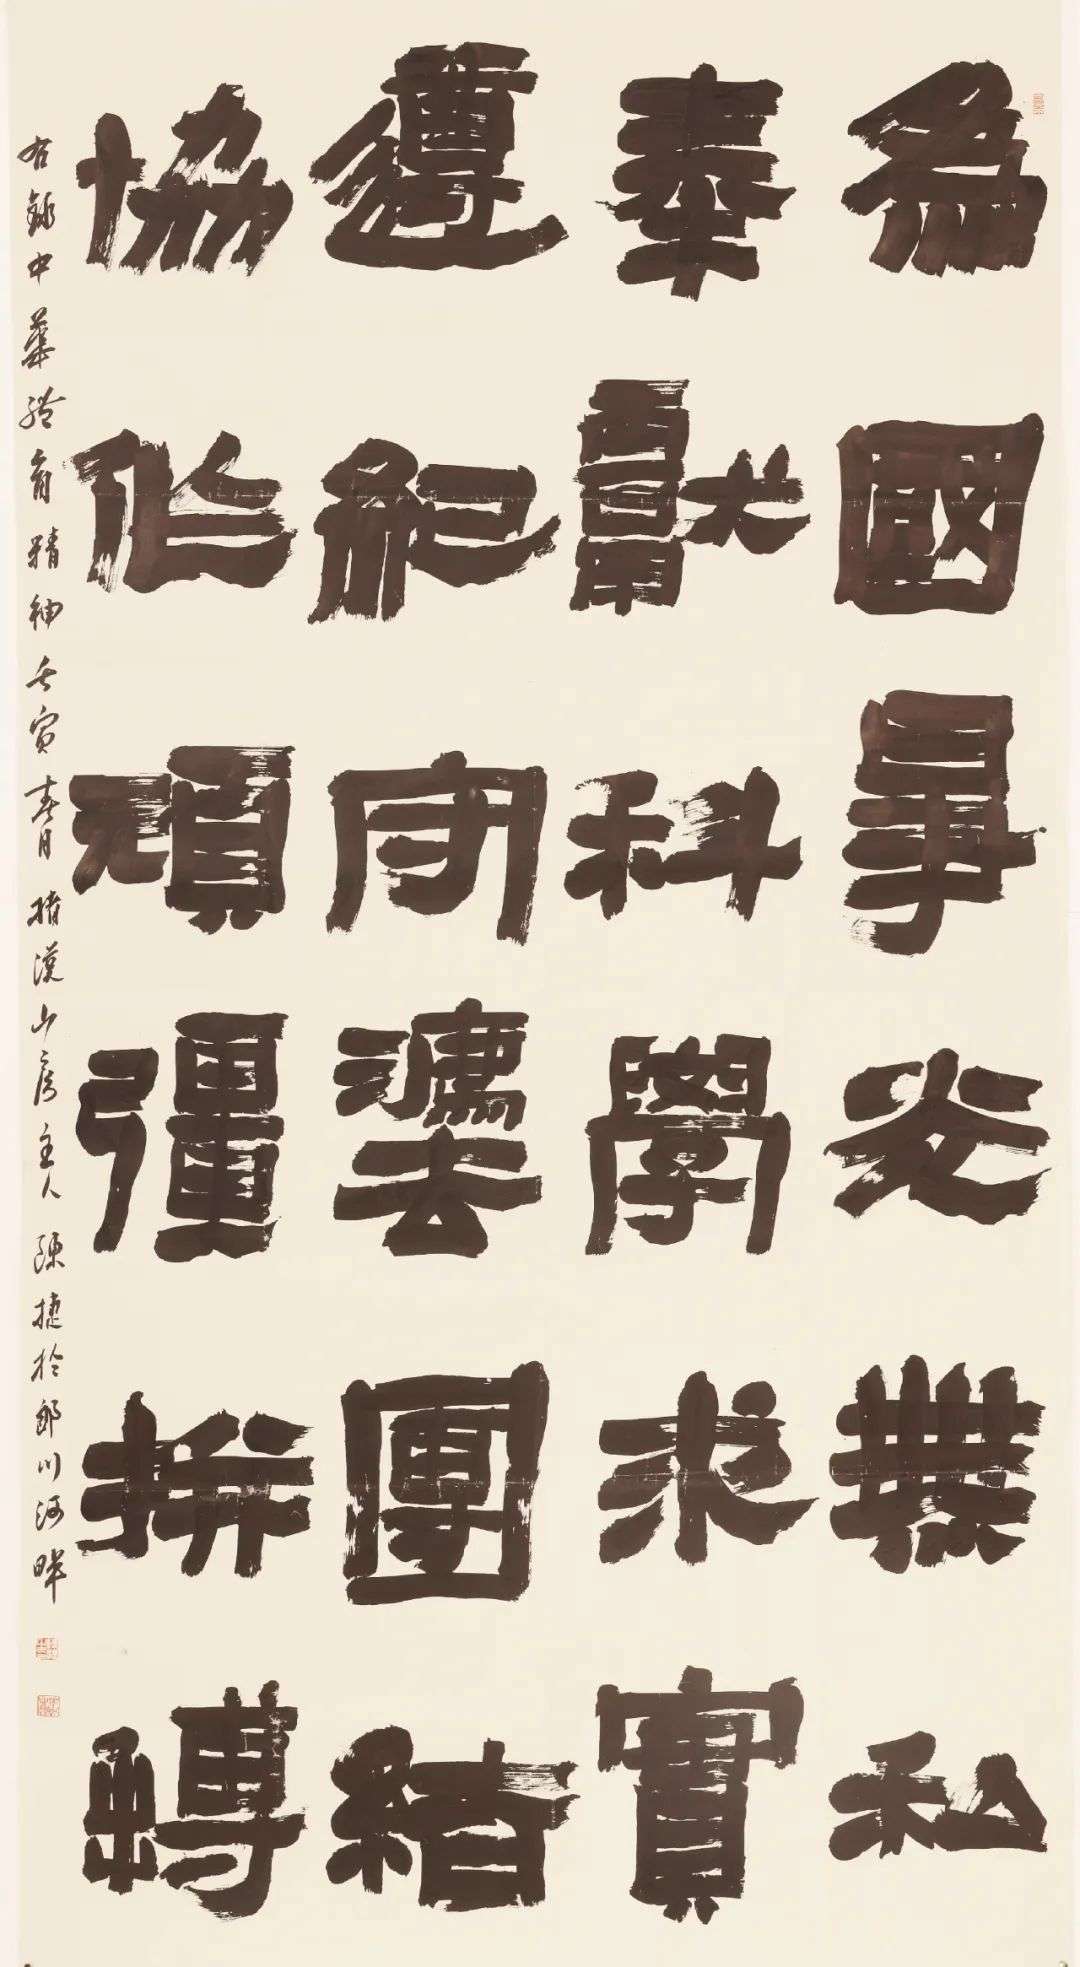 為國畢炎無私
奉獻科學求實
遵紀守灋團結
協作頑彊拚搏
右錄中華體育精神壬寅春月揹漢山房主人陳捷於郎川河畔